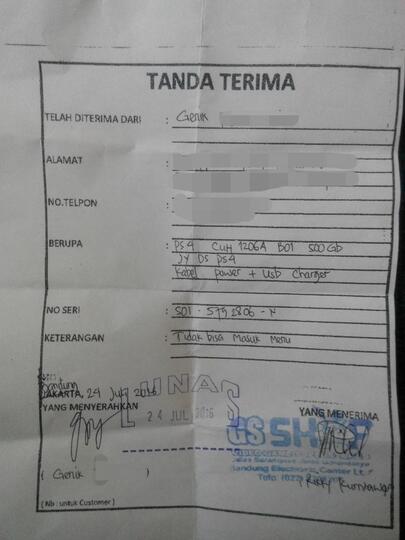 TANDA TERIMA
TELAH DITERIMA DARI : Genik
ALAMAT :
NO.TELPON :
BERUPA : PS4 CUH 1206A B01 500Gb
JY DS PS4
Kabel power + Usb Charger
NO SERI : S01 - 5792806 - N
KETERANGAN : Tidak bisa Masuk Menu
Bandung
JAKARTA, 24 Juli 2016
LUNAS
YANG MENYERAHKAN
24 JUL 2016
YANG MENERIMA
GS SHOP
Bandung Electronic Center Lt.
Telp. (022)
( Genik )
( Rizky Kurniawan
( Nb : untuk Customer )